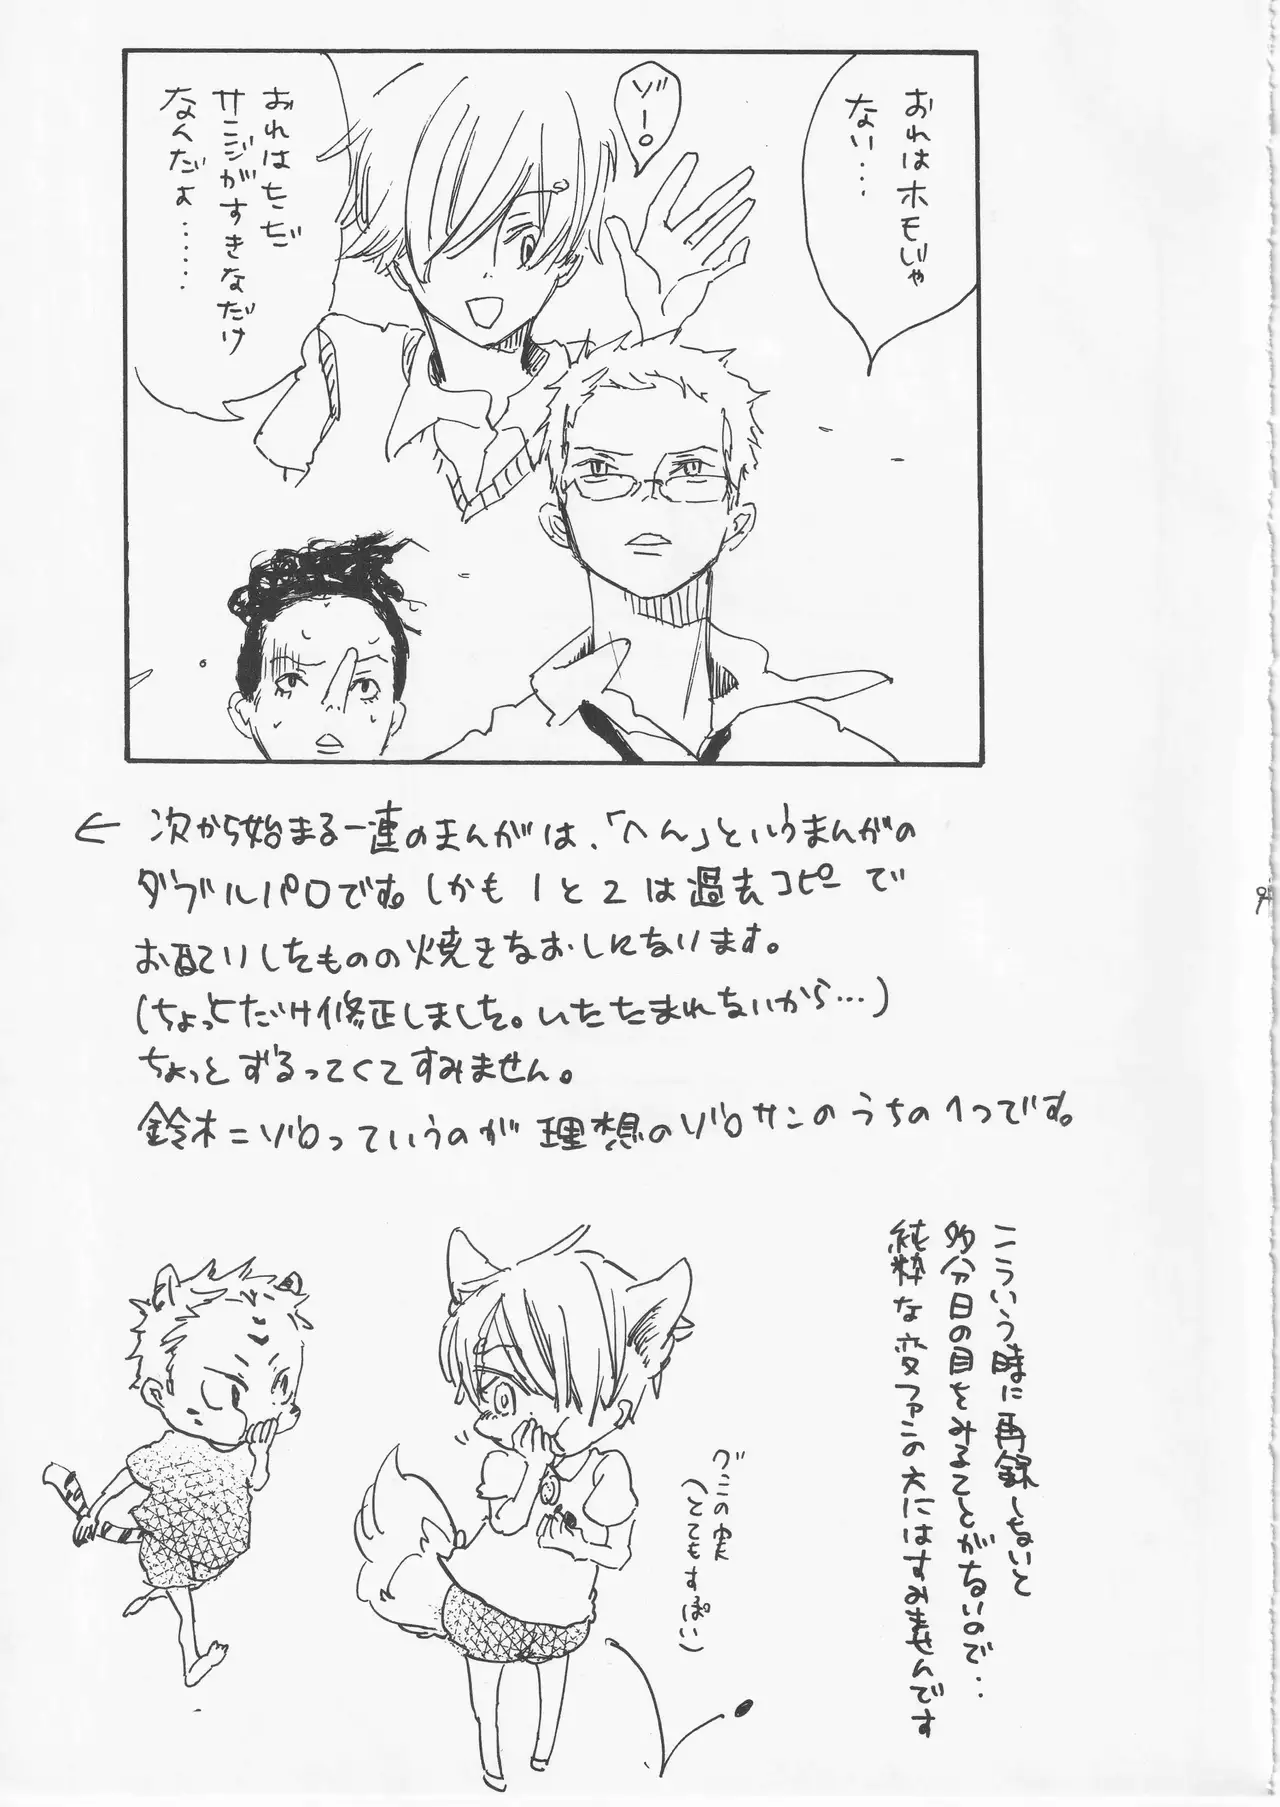 おれはホモじゃ
ない…
ゾーロ
おれはただ
サンジがすきなだけ
なんだよ……
← 次から始まる一連のまんがは、「へん」というまんがの
ダブルパロです。しかも1と2は過去コピーで
お配りしたものの焼きなおしになります。
(ちょっとだけ修正しました。いたたまれないから…)
ちょっとずるってくてすみません。
鈴木=ゾロっていうのが理想のゾロサンのうちの1つです。
こういう時に再録しないと
多分日の目をみることがないので‥
純粋な変ファンの方にはすみませんです
グミの実
(とてもすっぱい)